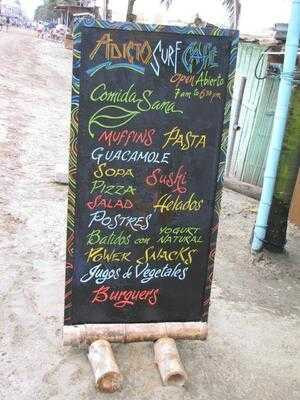 ADICTO SURF CAFE
Open Abierto
7 am to 5:30 pm
Comida Sana
MUFFINS PASTA
GUACAMOLE
SOPA Sushi
PIZZA
SALAD Helados
POSTRES
Batidos con YOGURT NATURAL
POWER SNACKS
Jugos de Vegetales
Burguers